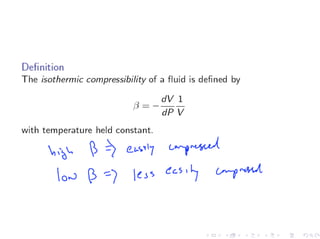 Definition
The isothermic compressibility of a fluid is defined by
β = − dV/dP 1/V
with temperature held constant.
high β ⇒ easily compressed
low β ⇒ less easily compressed